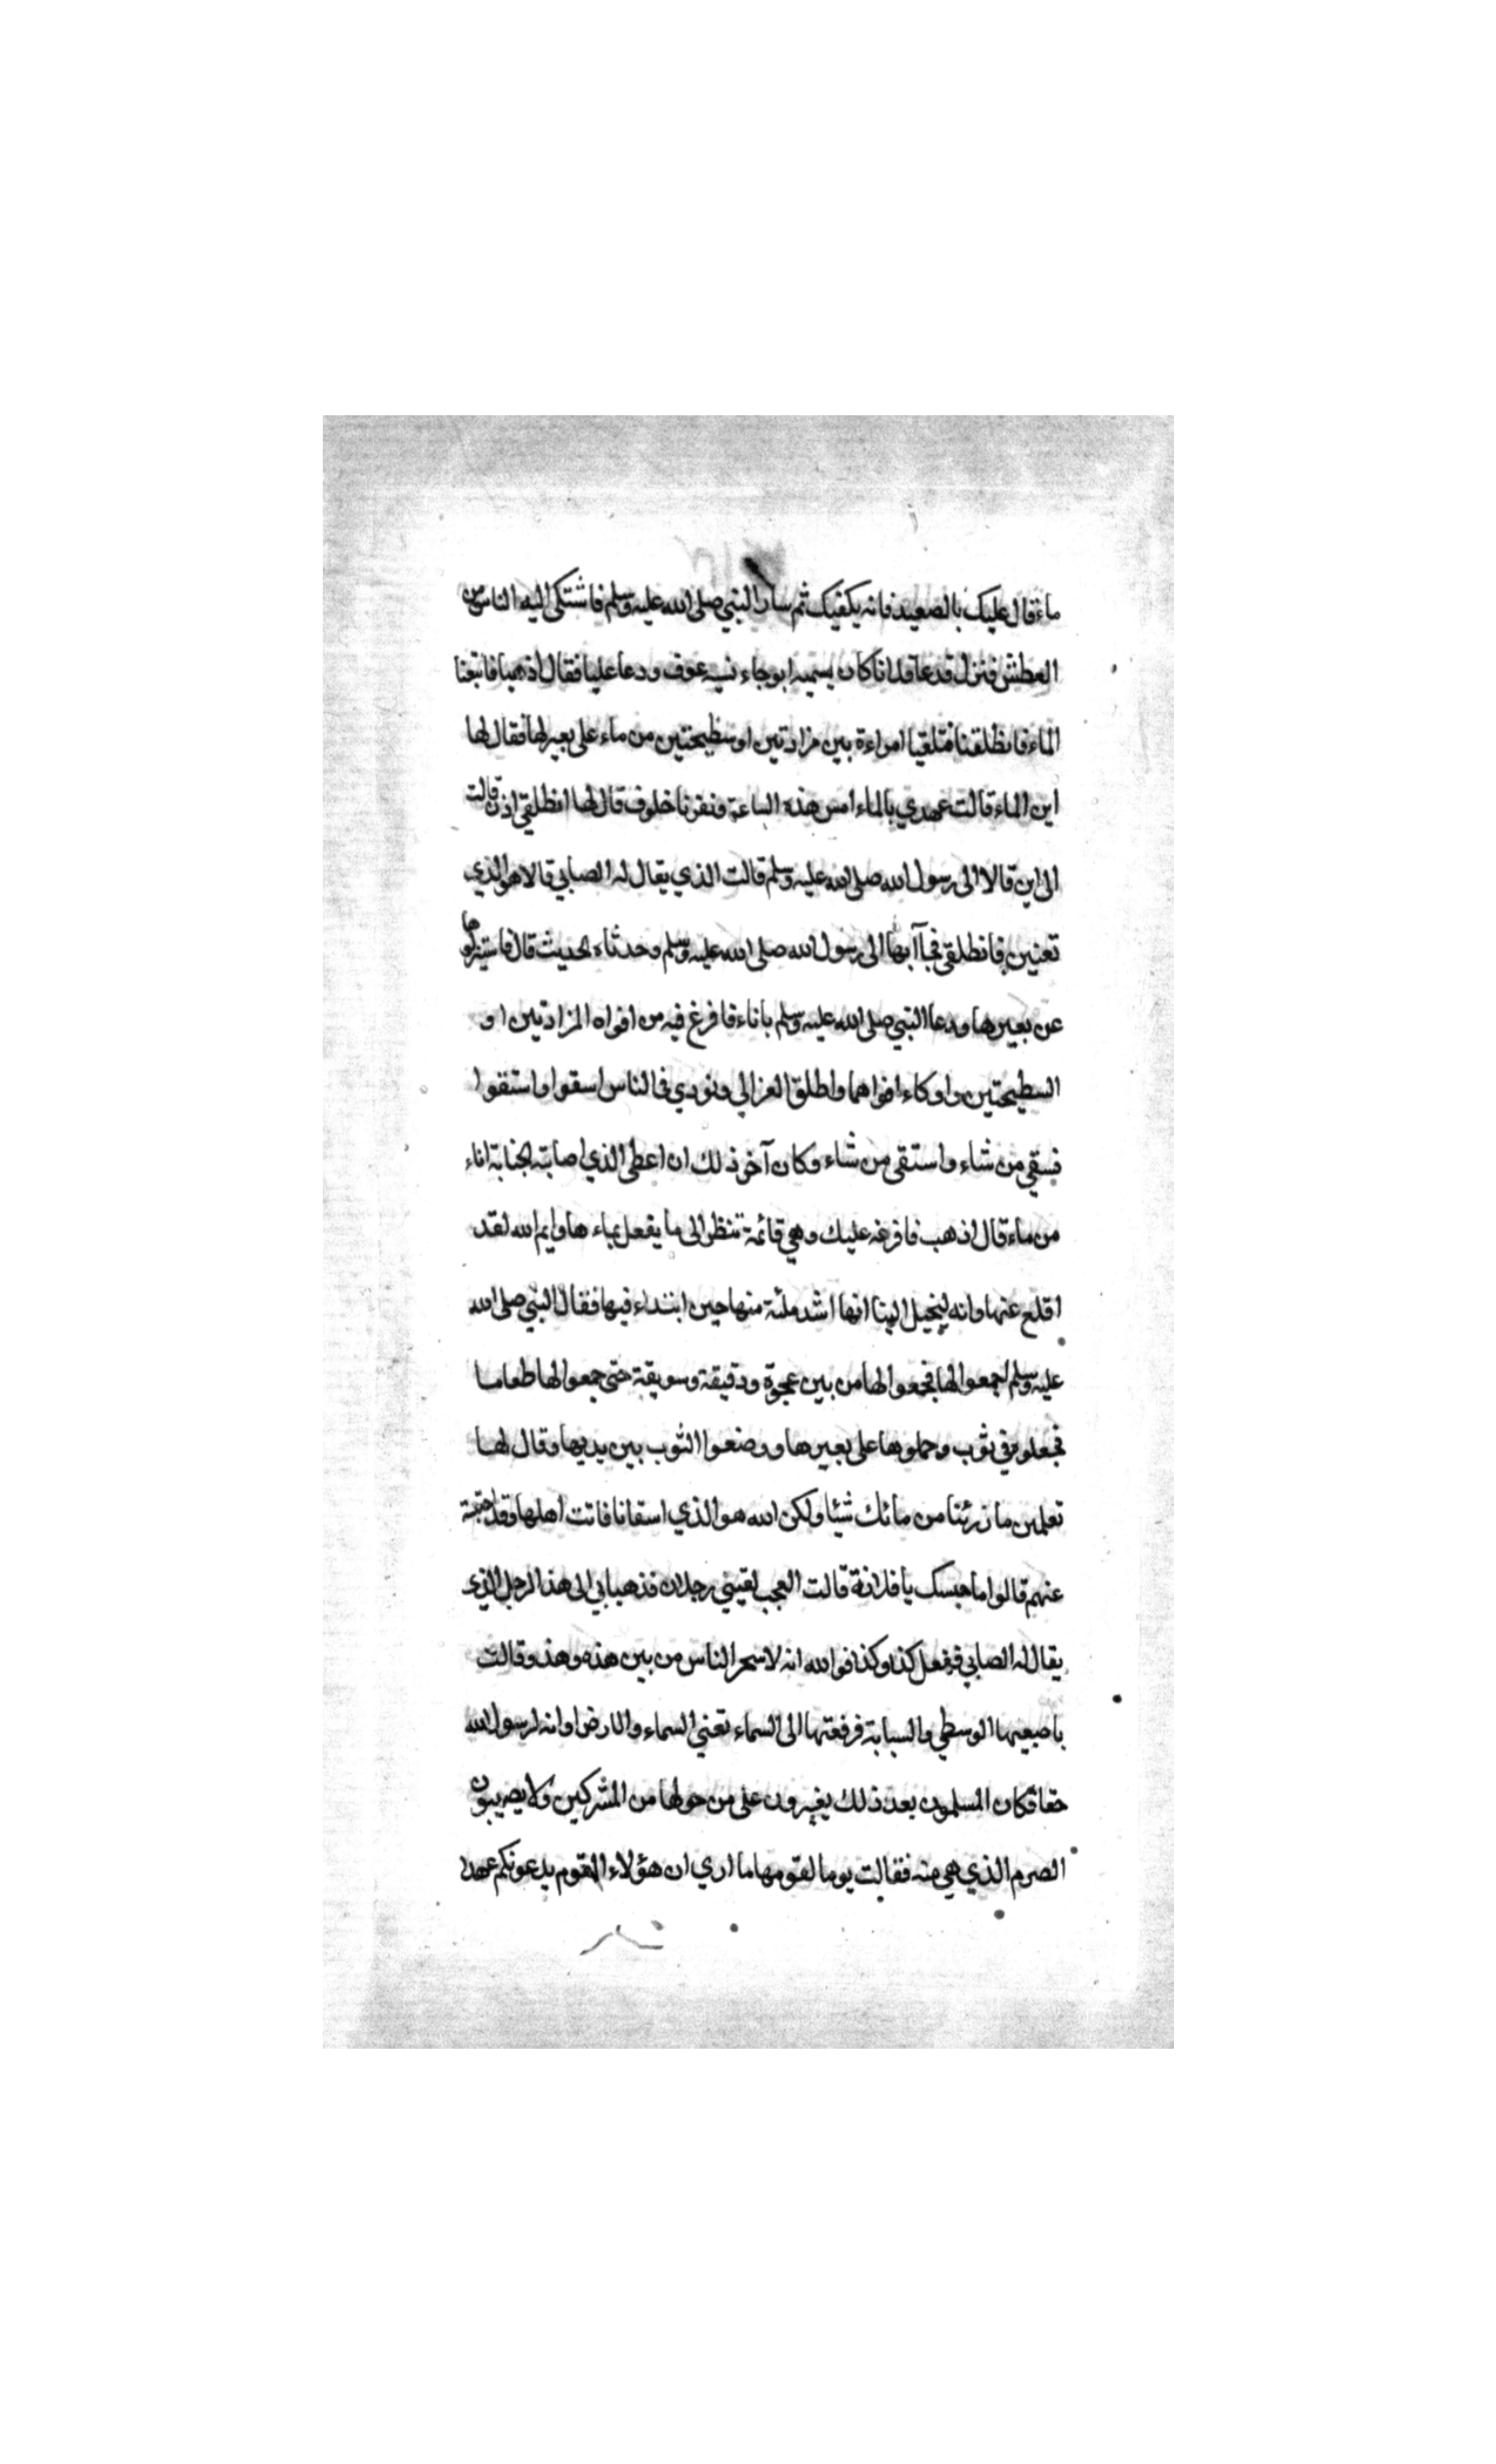 ماء قال عليك بالصعيد فانه يكفيك ثم سار النبي صلى الله عليه وسلم فاشتكى اليه الناس من
العطش فنزل فدعا فلانا كان يسميه ابو رجاء نسيه عوف ودعا عليا فقال اذهبا فابتغنا
الماء فانطلقنا فتلقيا امراءة بين مزادتين او سطيحتين من ماء على بعير لها فقال لها
اين الماء قالت عهدي بالماء امس هذه الساعة ونفرنا خلوف قال لها انطلقي اذن قالت
الى اين قالا الى رسول الله صلى الله عليه وسلم قالت الذي يقال له الصابي قالا هو الذي
تعنين فانطلقي فجاآ بها الى رسول الله صلى الله عليه وسلم وحدثاه الحديث قال فاستنزلوها
عن بعيرها ودعا النبي صلى الله عليه وسلم باناء فافرغ فيه من افواه المزادتين او
السطيحتين واوكاء افواهما واطلق العزالي ونودي في الناس اسقوا واستقوا
فسقي من شاء واستقى من شاء وكان آخر ذلك ان اعطى الذي اصابته الجنابة اناء
من ماء قال اذهب فافرغه عليك وهي قائمة تنظر الى ما يفعل بماءها وايم الله لقد
اقلع عنها وانه ليخيل الينا انها اشد ملئة منها حين ابتداء فيها فقال النبي صلى الله
عليه وسلم اجمعوا لها فجمعوا لها من بين عجوة ودقيقة وسويقة حتى جمعوا لها طعاما
فجعلوه في ثوب وحملوها على بعيرها ووضعوا الثوب بين يديها وقال لها
تعلمين ما زرئنا من مائك شيئا ولكن الله هو الذي اسقانا فاتت اهلها وقد احتبسة
عنهم قالوا ما حبسك يا فلانة قالت العجب لقيني رجلان فذهبا بي الى هذا الرجل الذي
يقال له الصابي ففعل كذا وكذا فوالله انه لاسحر الناس من بين هذه وهذه وقالت
باصبعيها الوسطي والسبابة فرفعتها الى السماء تعني السماء والارض او انه لرسول الله
حقا فكان المسلمون بعد ذلك يغيرون على من حولها من المشركين ولا يصيبون
الصرم الذي هي منه فقالت يوما لقومها ما اري ان هؤلاء القوم يدعونكم عمدا